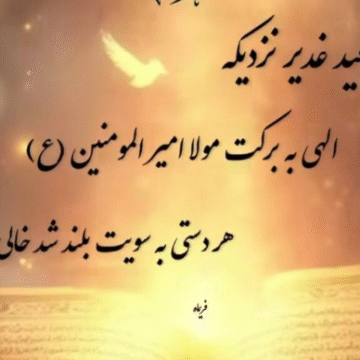 عید غدیر نزدیکه
الهی به برکت مولا امیرالمومنین (ع)
هر دستی به سویت بلند شد خالی